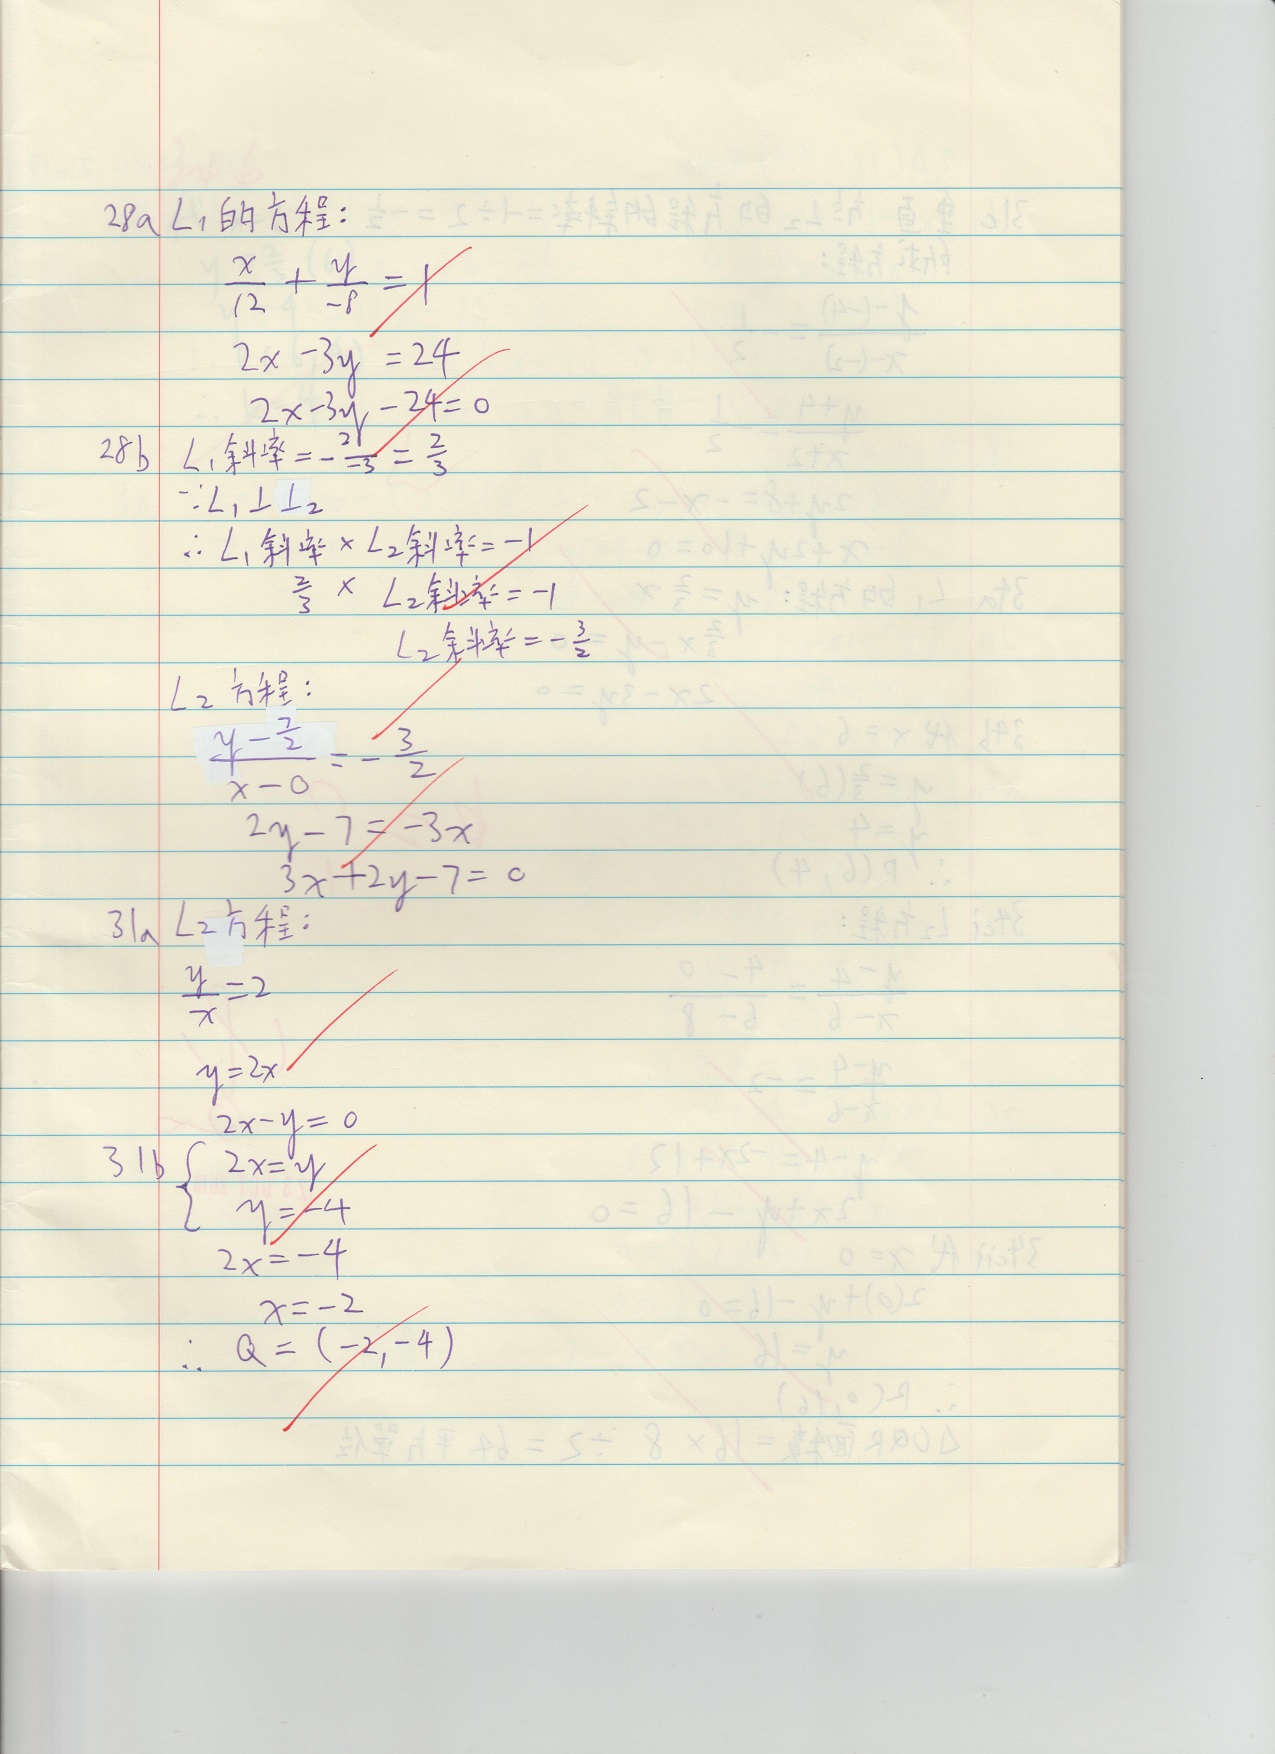 28a L₁的方程:
x/12 + y/-8 = 1
2x -3y = 24
2x-3y-24=0
28b L₁斜率=-2/-3=2/3
∵L₁⊥L₂
∴L₁斜率×L₂斜率=-1
2/3 × L₂斜率=-1
L₂斜率=-3/2
L₂方程:
(y-7/2)/(x-0) = -3/2
2y-7=-3x
3x+2y-7=0
31a L₂方程:
y/x=2
y=2x
2x-y=0
31b { 2x=y
y=-4
2x=-4
x=-2
∴ Q=(-2,-4)